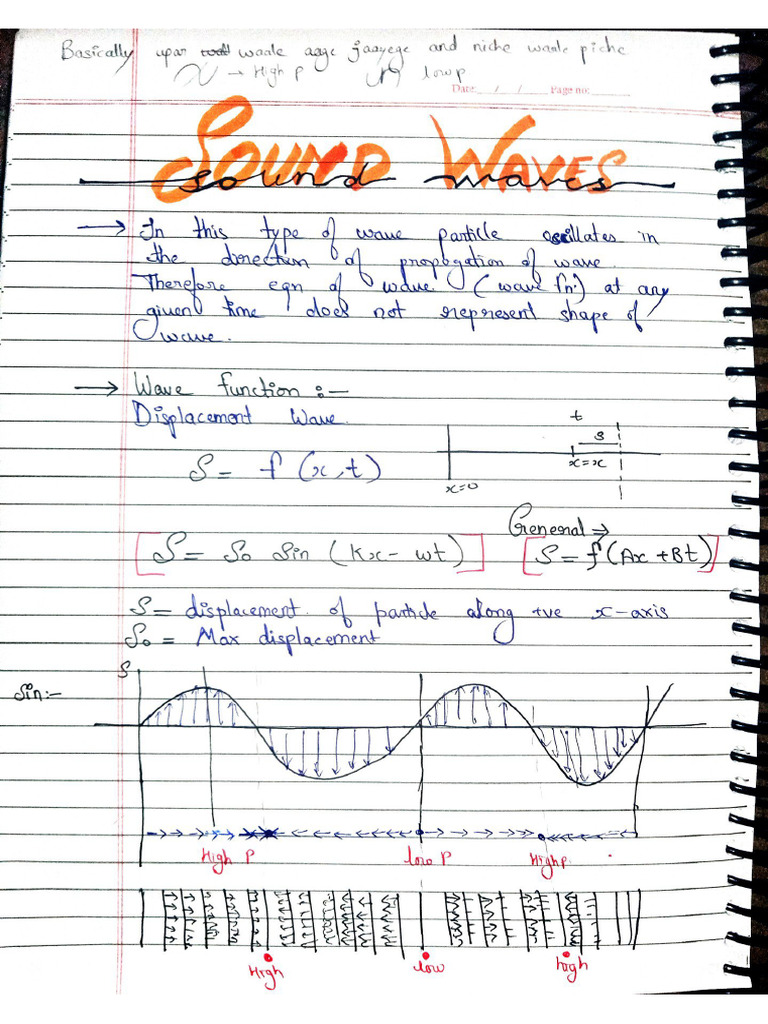 Basically upar waale aage jaayege and niche waale piche
→ High P low P
Date: / / Page no:
SOUND WAVES
sound waves
→ In this type of wave particle oscillates in
the direction of propogation of wave.
Therefore eqn of wave (wave fn:) at any
given time does not represent shape of
wave.
→ Wave function :-
Displacement Wave.
t
s
S = f (x,t)
x=0
x=x
General ⇒
[S = So Sin (Kx - wt)] [S = f (Ax + Bt)]
S = displacement of particle along +ve x-axis
So = Max displacement
S
Sin:-
High P low P High P.
High low high